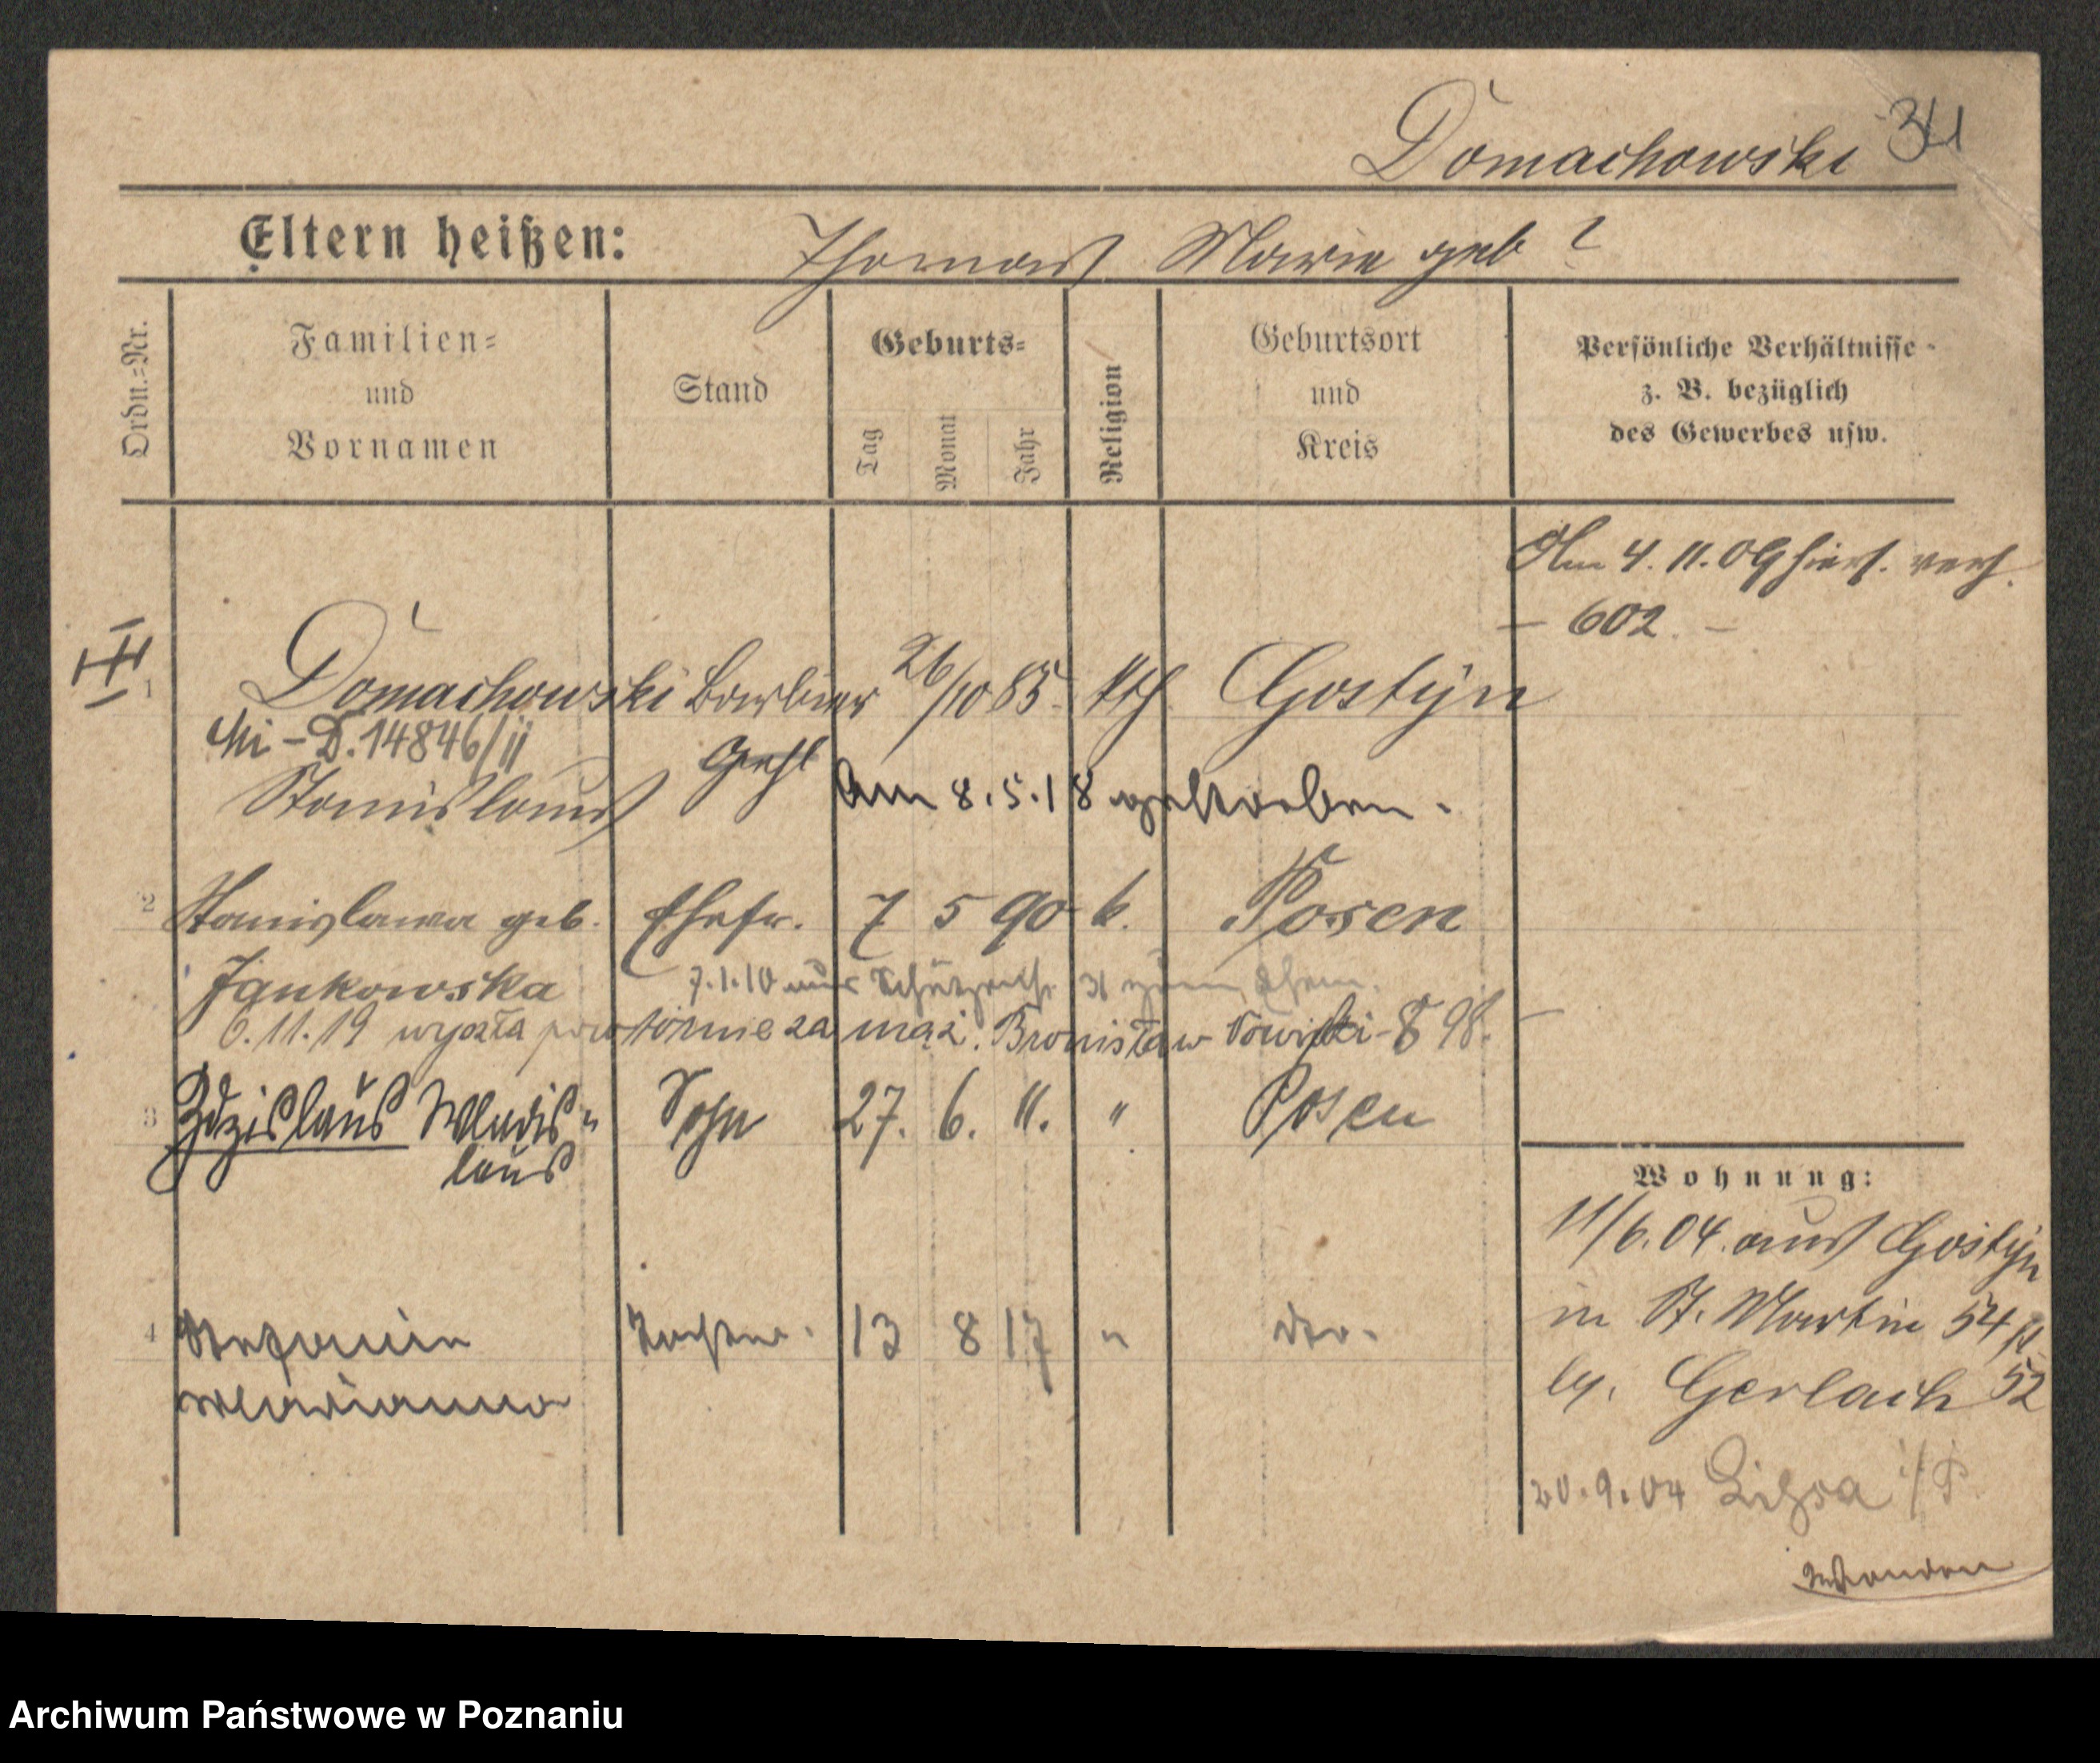 Domachowski 34
Eltern heißen: Thomas Marie geb ?
Ordn.=Nr.
Familien=
und
Vornamen
Stand
Geburts=
Tag
Monat
Jahr
Religion
Geburtsort
und
Kreis
Persönliche Verhältnisse
z. B. bezüglich
des Gewerbes usw.
Am 4. 11. 09 hiers. verh.
– 602. –
III
1 Domachowski Barbier 26/10 85. kth Gostÿn
Mi – D. 14846/ii
Stanislaus Gehl Am 8.5.18 gestorben.
2 Stanislawa geb. Ehefr. 7 5 90 k. Posen
Jankowska 7.1.10 31 zum Ehem.
6.11.19 wyszła powtórnie za mąż. Bronisław 98. –
3 Zdzislaus Wladis= Sohn 27. 6. 11. " Posen
laus
4 Stefania Tochter. 13 8 17 " dto.
Marianna
Wohnung:
11/6.04. aus Gostÿn
in St. Martin 54
by. Gerlach 52
20.9.04 Lissa i/P
Archiwum Państwowe w Poznaniu